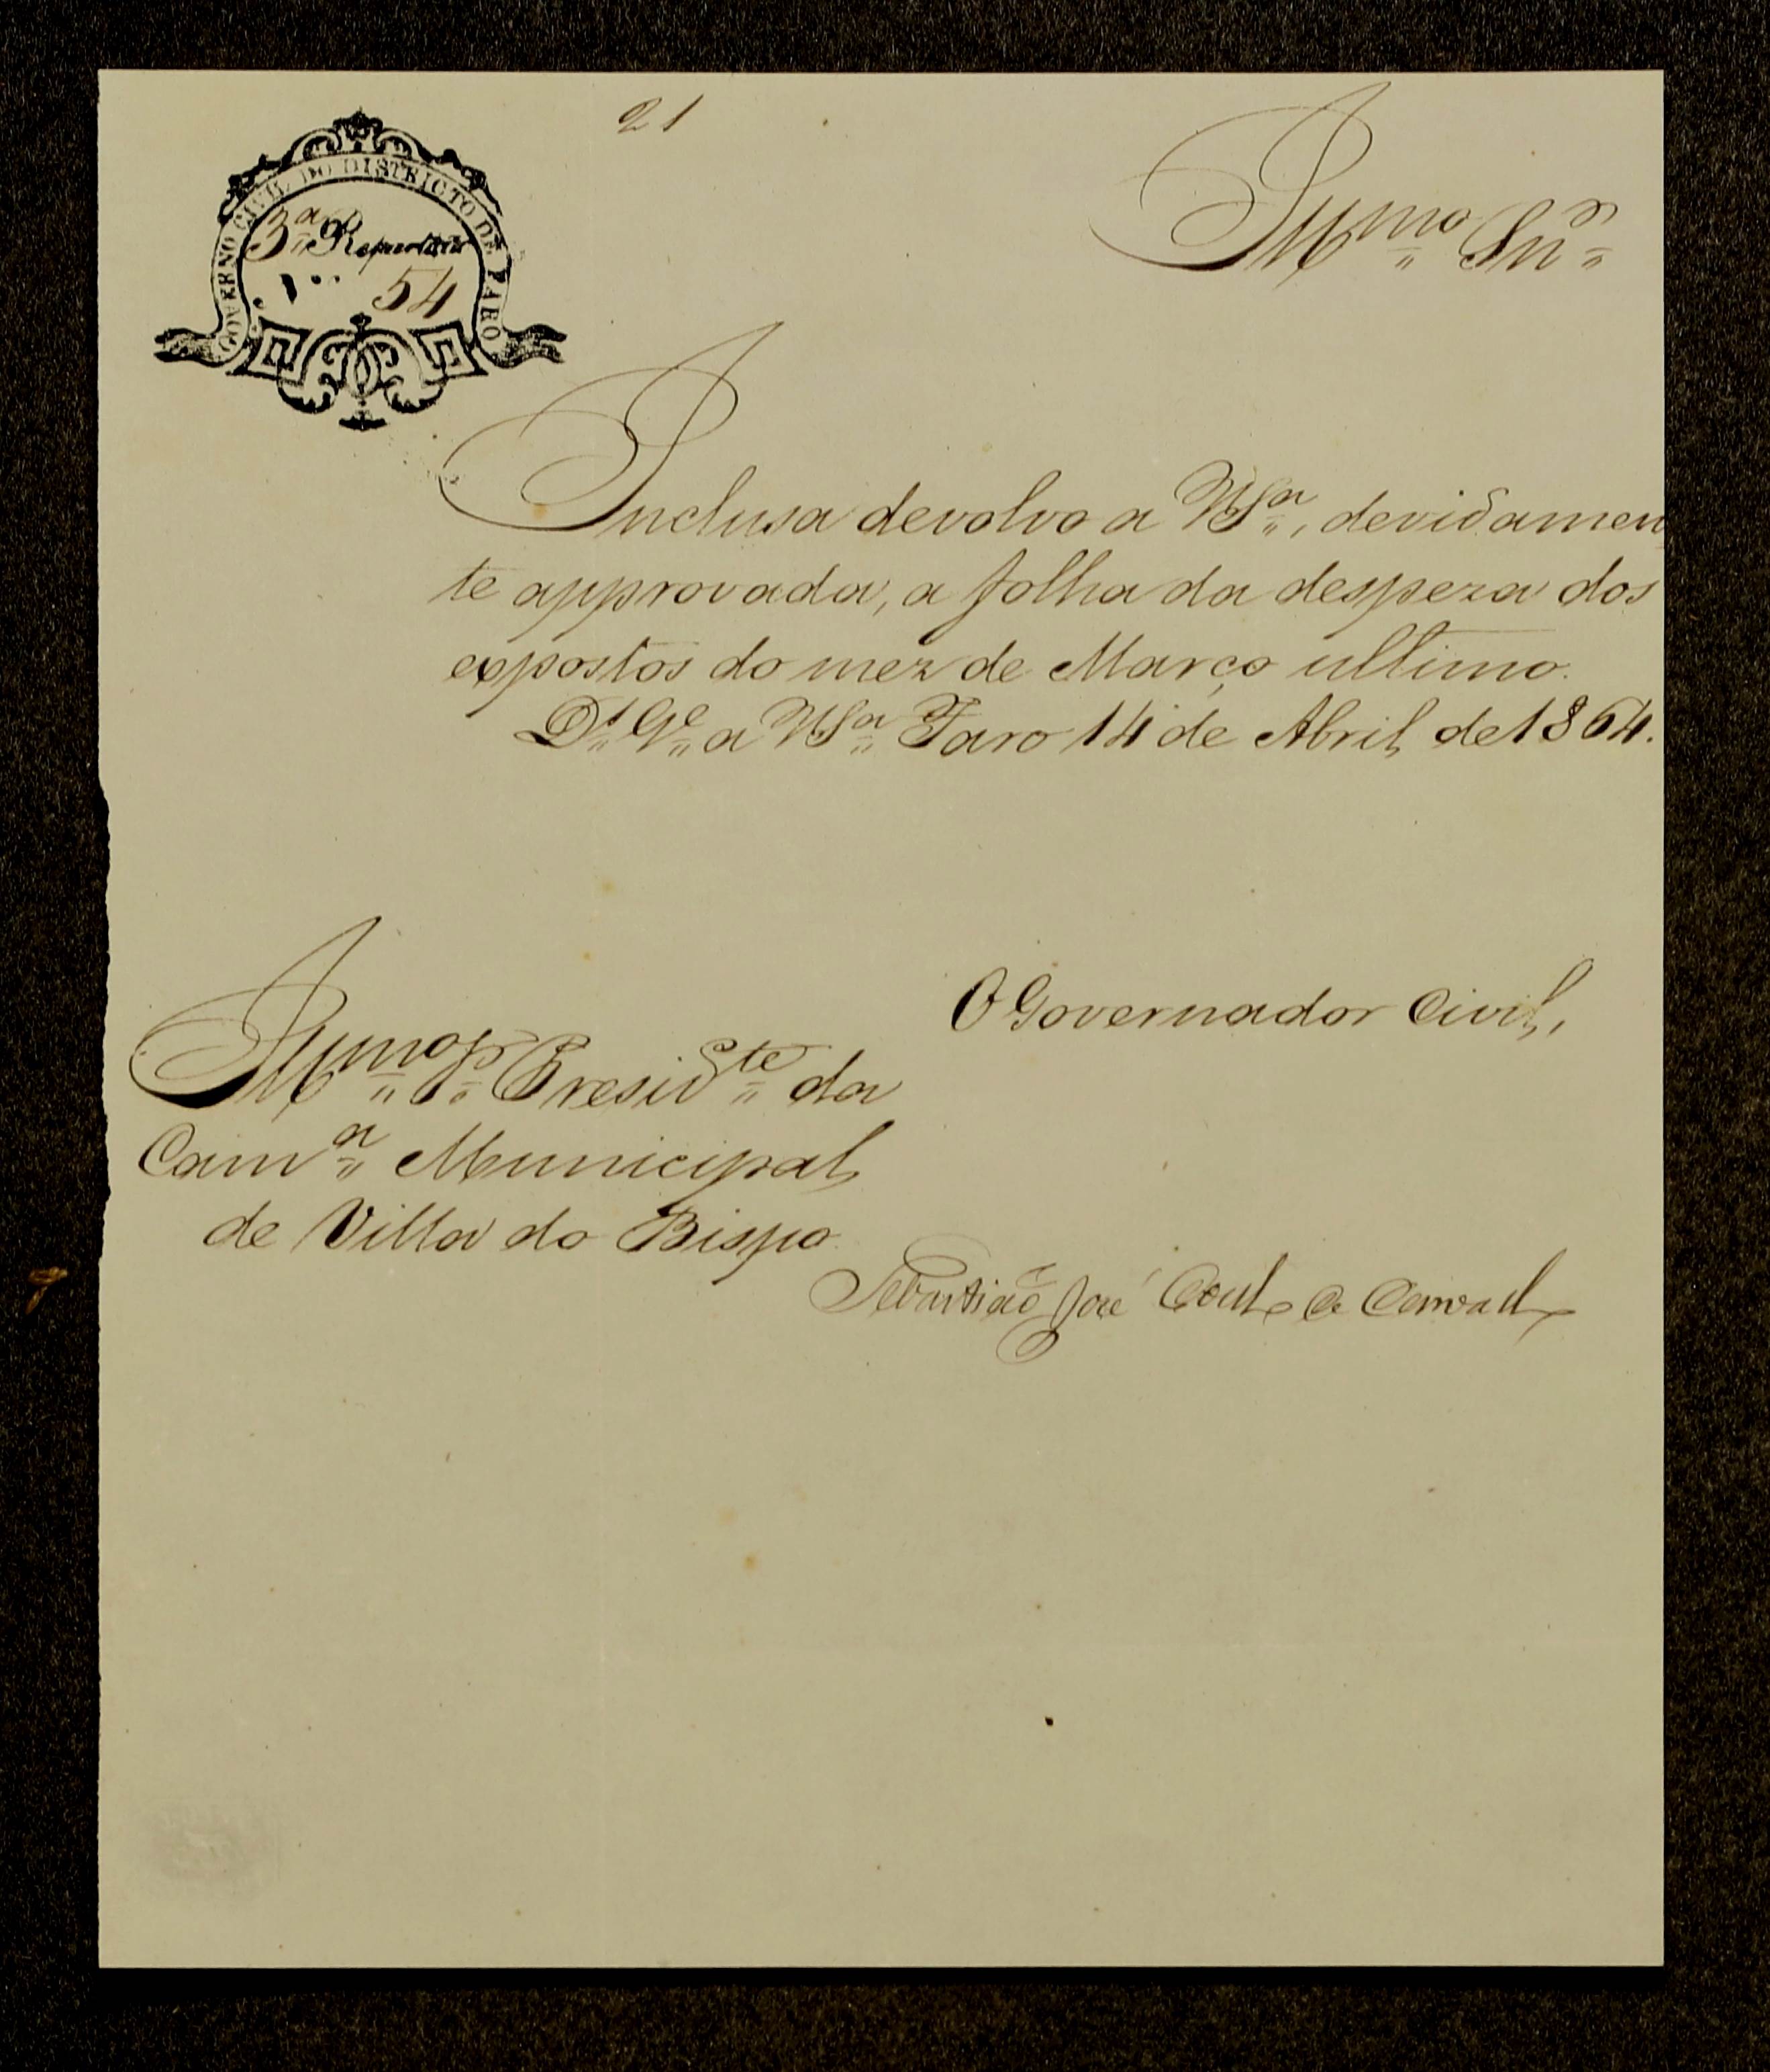 21
GOVERNO CIVIL DO DISTRICTO DE FARO
3.ª Repartição
N.º 54
Illmo Snr
Inclusa devolvo a V Sa, devidamen
te approvada, a folha da despeza dos
expostos do mez de Março ultimo.
Ds Ge a V Sa Faro 14 de Abril de 1864.
O Governador Civil,
Illmo Sr Presidte da
Cama Municipal
de Villa do Bispo
Sebastião José Coelho de Carvalho